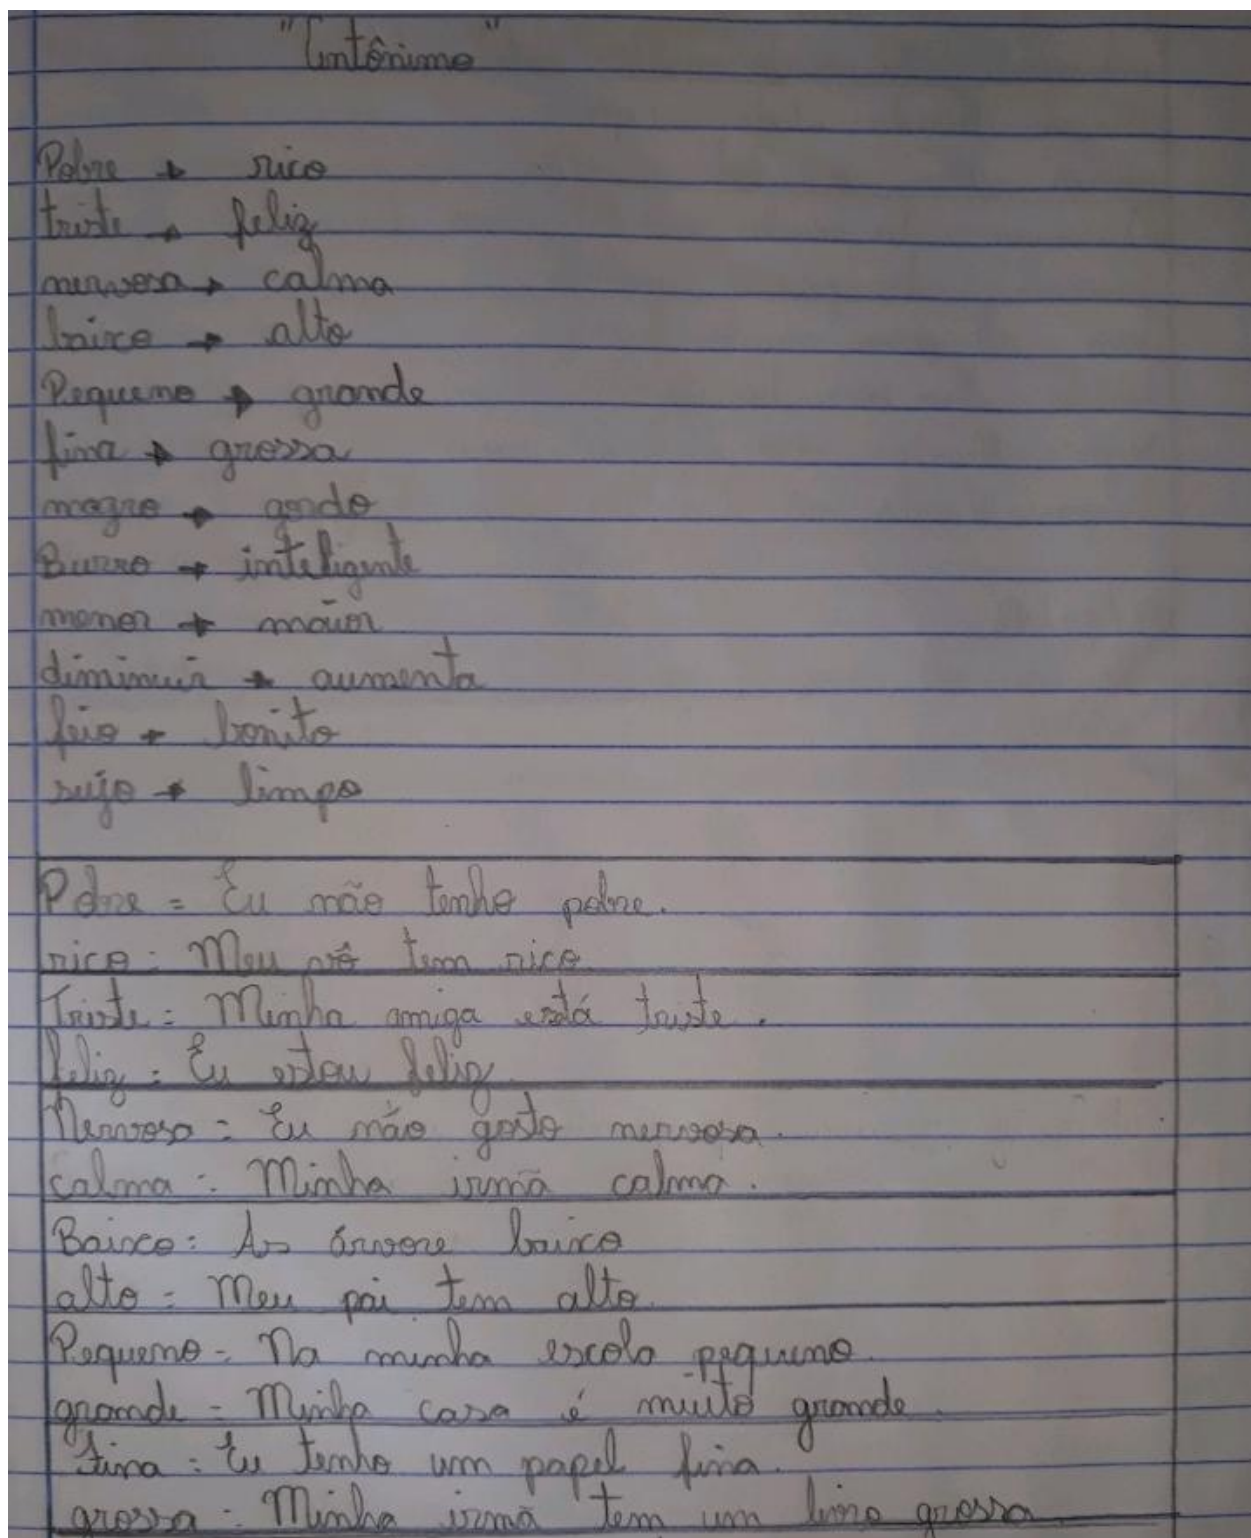 "Antônimo"
Pobre → rico
triste → feliz
nervosa → calma
baixo → alto
Pequeno → grande
fina → grossa
magro → gordo
Burro → inteligente
menor → maior
diminuir → aumenta
feio → bonito
sujo → limpo
Pobre = Eu não tenho pobre.
rico = Meu vô tem rico.
Triste = Minha amiga está triste.
feliz = Eu estou feliz.
Nervosa = Eu não gosto nervosa.
calma = Minha irmã calma.
Baixo = As árvore baixo
alto = Meu pai tem alto.
Pequeno = Na minha escola pequeno.
grande = Minha casa é muito grande.
Fina = Eu tenho um papel fina.
grossa = Minha irmã tem um livro grossa